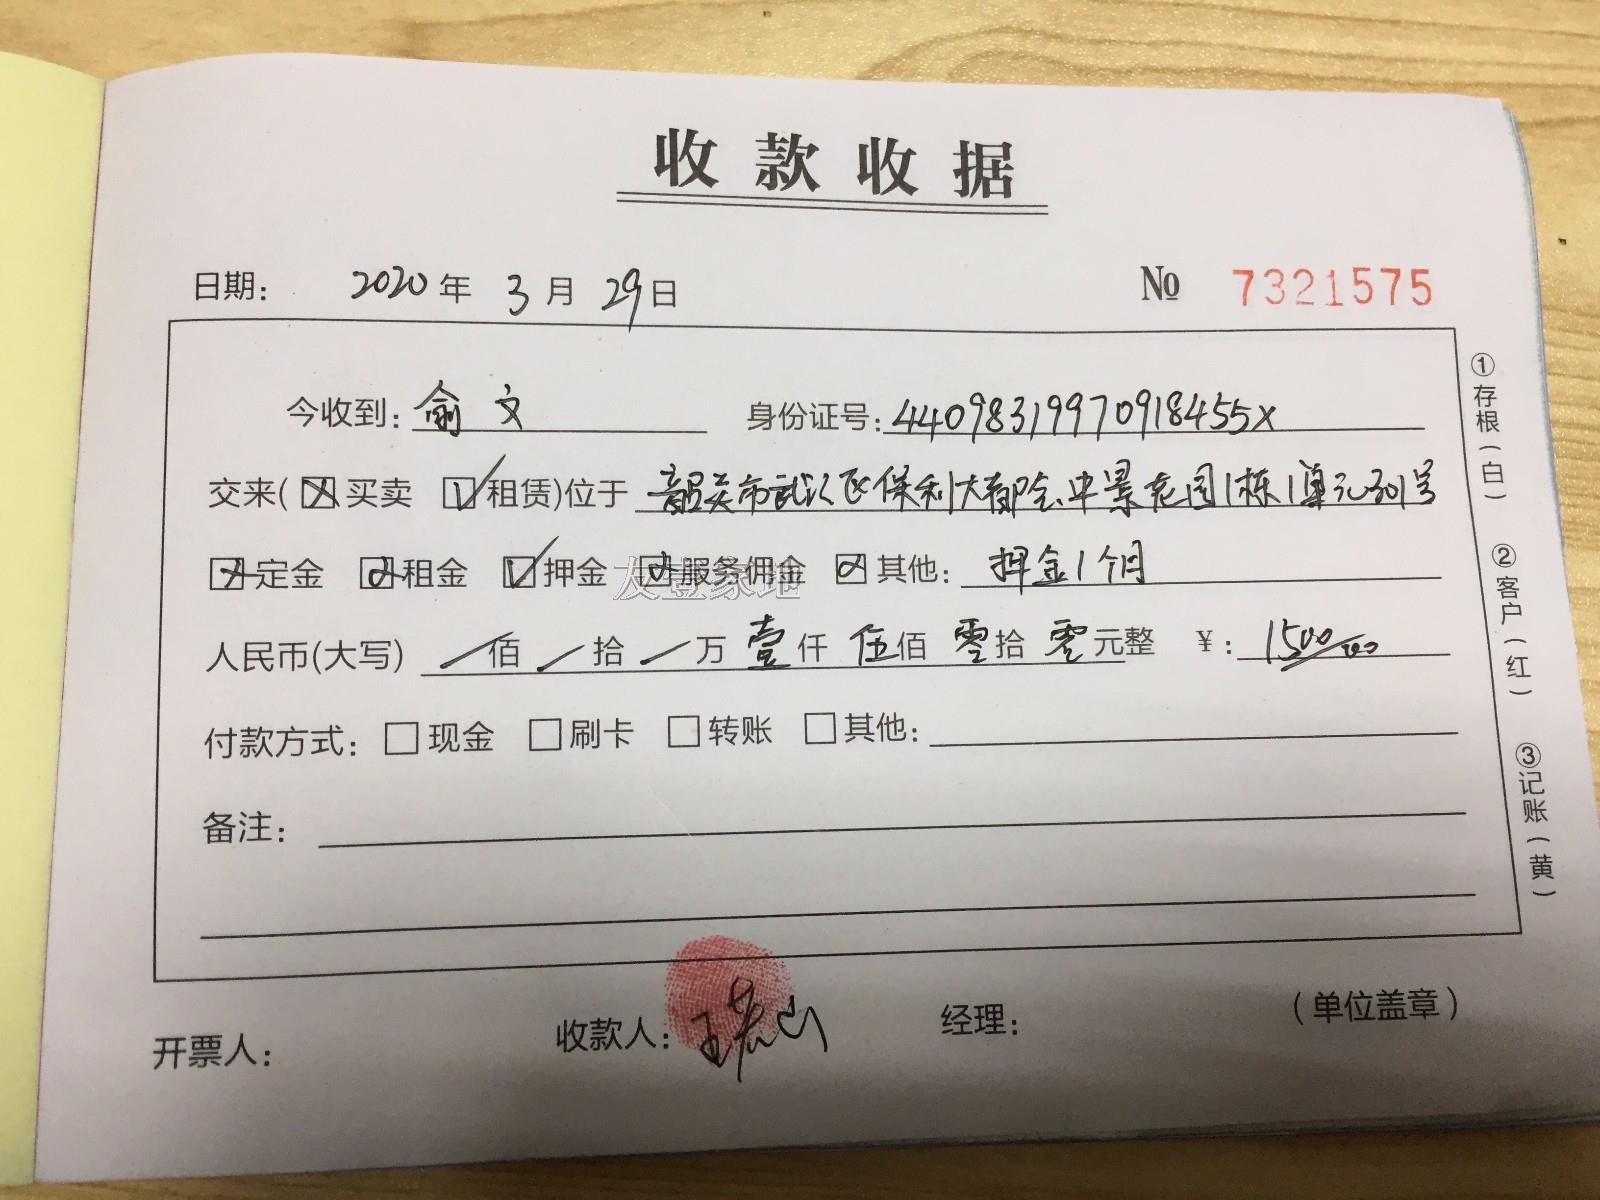 收款收据
日期： 2020年 3月 29日 № 7321575
今收到：俞文 身份证号：44098319970918455X
交来(☒买卖 ☑租赁)位于 韶关市武江区保利大都会中景花园1栋1单元301号
☒定金 ☒租金 ☑押金 ☒服务佣金 ☒其他：押金1个月
友壹家地
人民币(大写) /佰/拾/万壹仟伍佰零拾零元整 ¥：1500.00
付款方式：□现金 □刷卡 □转账 □其他：
备注：
开票人： 收款人：王 山 经理： （单位盖章）
①存根（白）
②客户（红）
③记账（黄）